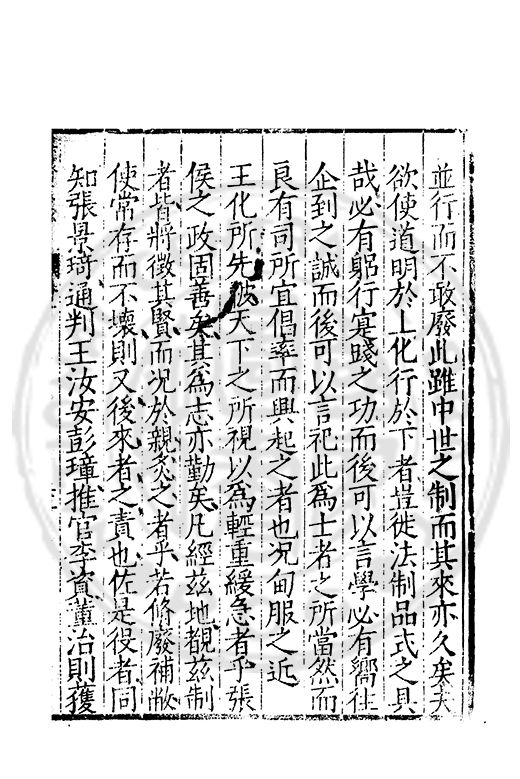 並行而不敢廢此雖中世之制而其來亦久矣夫
欲使道明於上化行於下者豈徒法制品式之具
哉必有躬行寔踐之功而後可以言學必有嚮往
企到之誠而後可以言祀此為士者之所當然而
良有司所宜倡率而興起之者也况甸服之近
王化所先被天下之所視以為輕重緩急者乎張
侯之政固善矣其為志亦勤矣凡經兹地覩兹制
者皆將徵其賢而况於親炙之者乎若脩廢補敝
使常存而不壞則又後來者之責也佐是役者同
知張景琦通判王汝安彭璋推官李資董治則獲